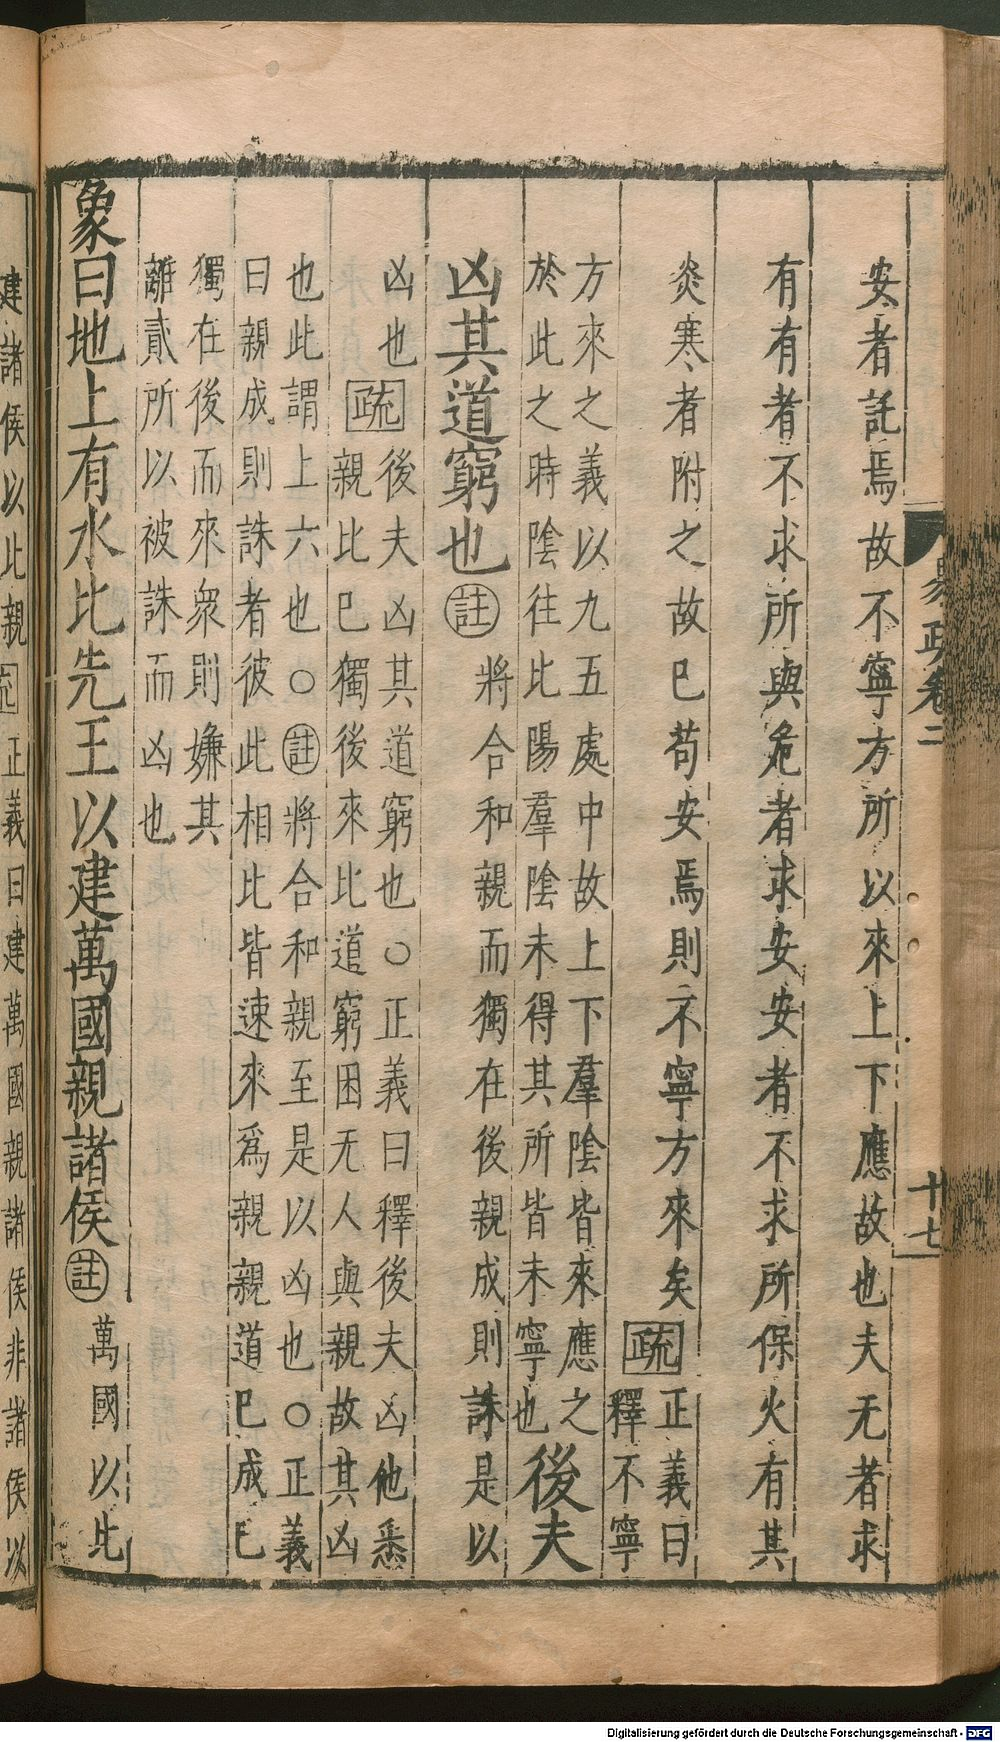 安者託焉故不寧方所以來上下應故也夫无者求
有有者不求所與危者求安安者不求所保火有其
炎寒者附之故已苟安焉則不寧方來矣疏正義曰
釋不寧
方來之義以九五處中故上下羣陰皆來應之
於此之時陰往比陽羣陰未得其所皆未寧也後夫
凶其道窮也註將合和親而獨在後親成則誅是以
凶也疏後夫凶其道窮也○正義曰釋後夫凶他悉
親比已獨後來比道窮困无人與親故其凶
也此謂上六也○註將合和親至是以凶也○正義
曰親成則誅者彼此相比皆速來爲親親道已成已
獨在後而來衆則嫌其
離貳所以被誅而凶也
象曰地上有水比先王以建萬國親諸侯註萬國以此
建諸侯以比親疏正義曰建萬國親諸侯非諸侯以
卷二
十七
Digitalisierung gefördert durch die Deutsche Forschungsgemeinschaft - DFG